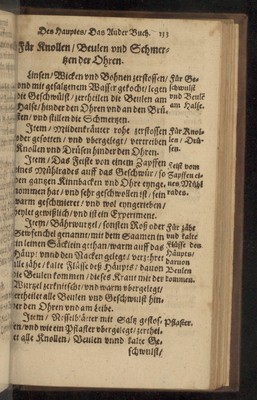 Des Hauptes/ Das Ander Buch. 133
Für Knollen/ Beulen vnd Schmer-
tzen der Ohren.
Linsen/ Wicken vnd Bohnen zerstossen/
vnd mit gesaltzenem Wasser gekocht/ legen
die Geschwülst/ zertheilen die Beulen am
Halse/ hinder den Ohren vnd an den Brü-
ken/ vnd stillen die Schmertzen.
Für Ge-
schwulst
vnd Beulē
am Halse.
Item/ Mildenkräuter rohe zerstossen
oder gesotten/ vnd vbergelegt/ vertreiben
Knollen vnd Drüsen hinder den Ohren.
Für Knol-
len/ Drü-
sen.
Item/ Das Feiste von einem Zapffen
eines Mühlrads auff das Geschwür/ so
den gantzen Kinnbacken vnd Ohre eynge-
nommen hat/ vnd sehr geschwollen ist/ fein
warm geschmieret/ vnd wol eyngerieben/
heylet gewißlich/ vnd ist ein Experiment.
Feist vom
Zapffen ei-
nes Mühl
rades.
Item/ Bährwurtzel/ sonsten Roß oder
Sewfenchel genannt/ mit dem Saamen in
ein leinen Säcklein gethan/ warm auff das
Häup: vnnd den Nacken gelegt/ verzehret
alle zähe/ kalte Flüsse deß Häupts/ dauon
die Beulen kommen/ dieses Kraut mit der
Wurtzel zerknirscht/ vnd warm vbergelegt/
zertheilet alle Beulen vnd Geschwulst hin-
der den Ohren vnd am Leibe.
Für zähe
vnd kalte
Flüsse des
Häupts/
darvon
Beulen
kommen.
Item/ Nesselblätter mit Saltz gestos-
sen/ vnd wie ein Pflaster vbergelegt/ zerthei-
let alle Knollen/ Beulen vnnd kalte Ge-
Pflaster.
schwulst/